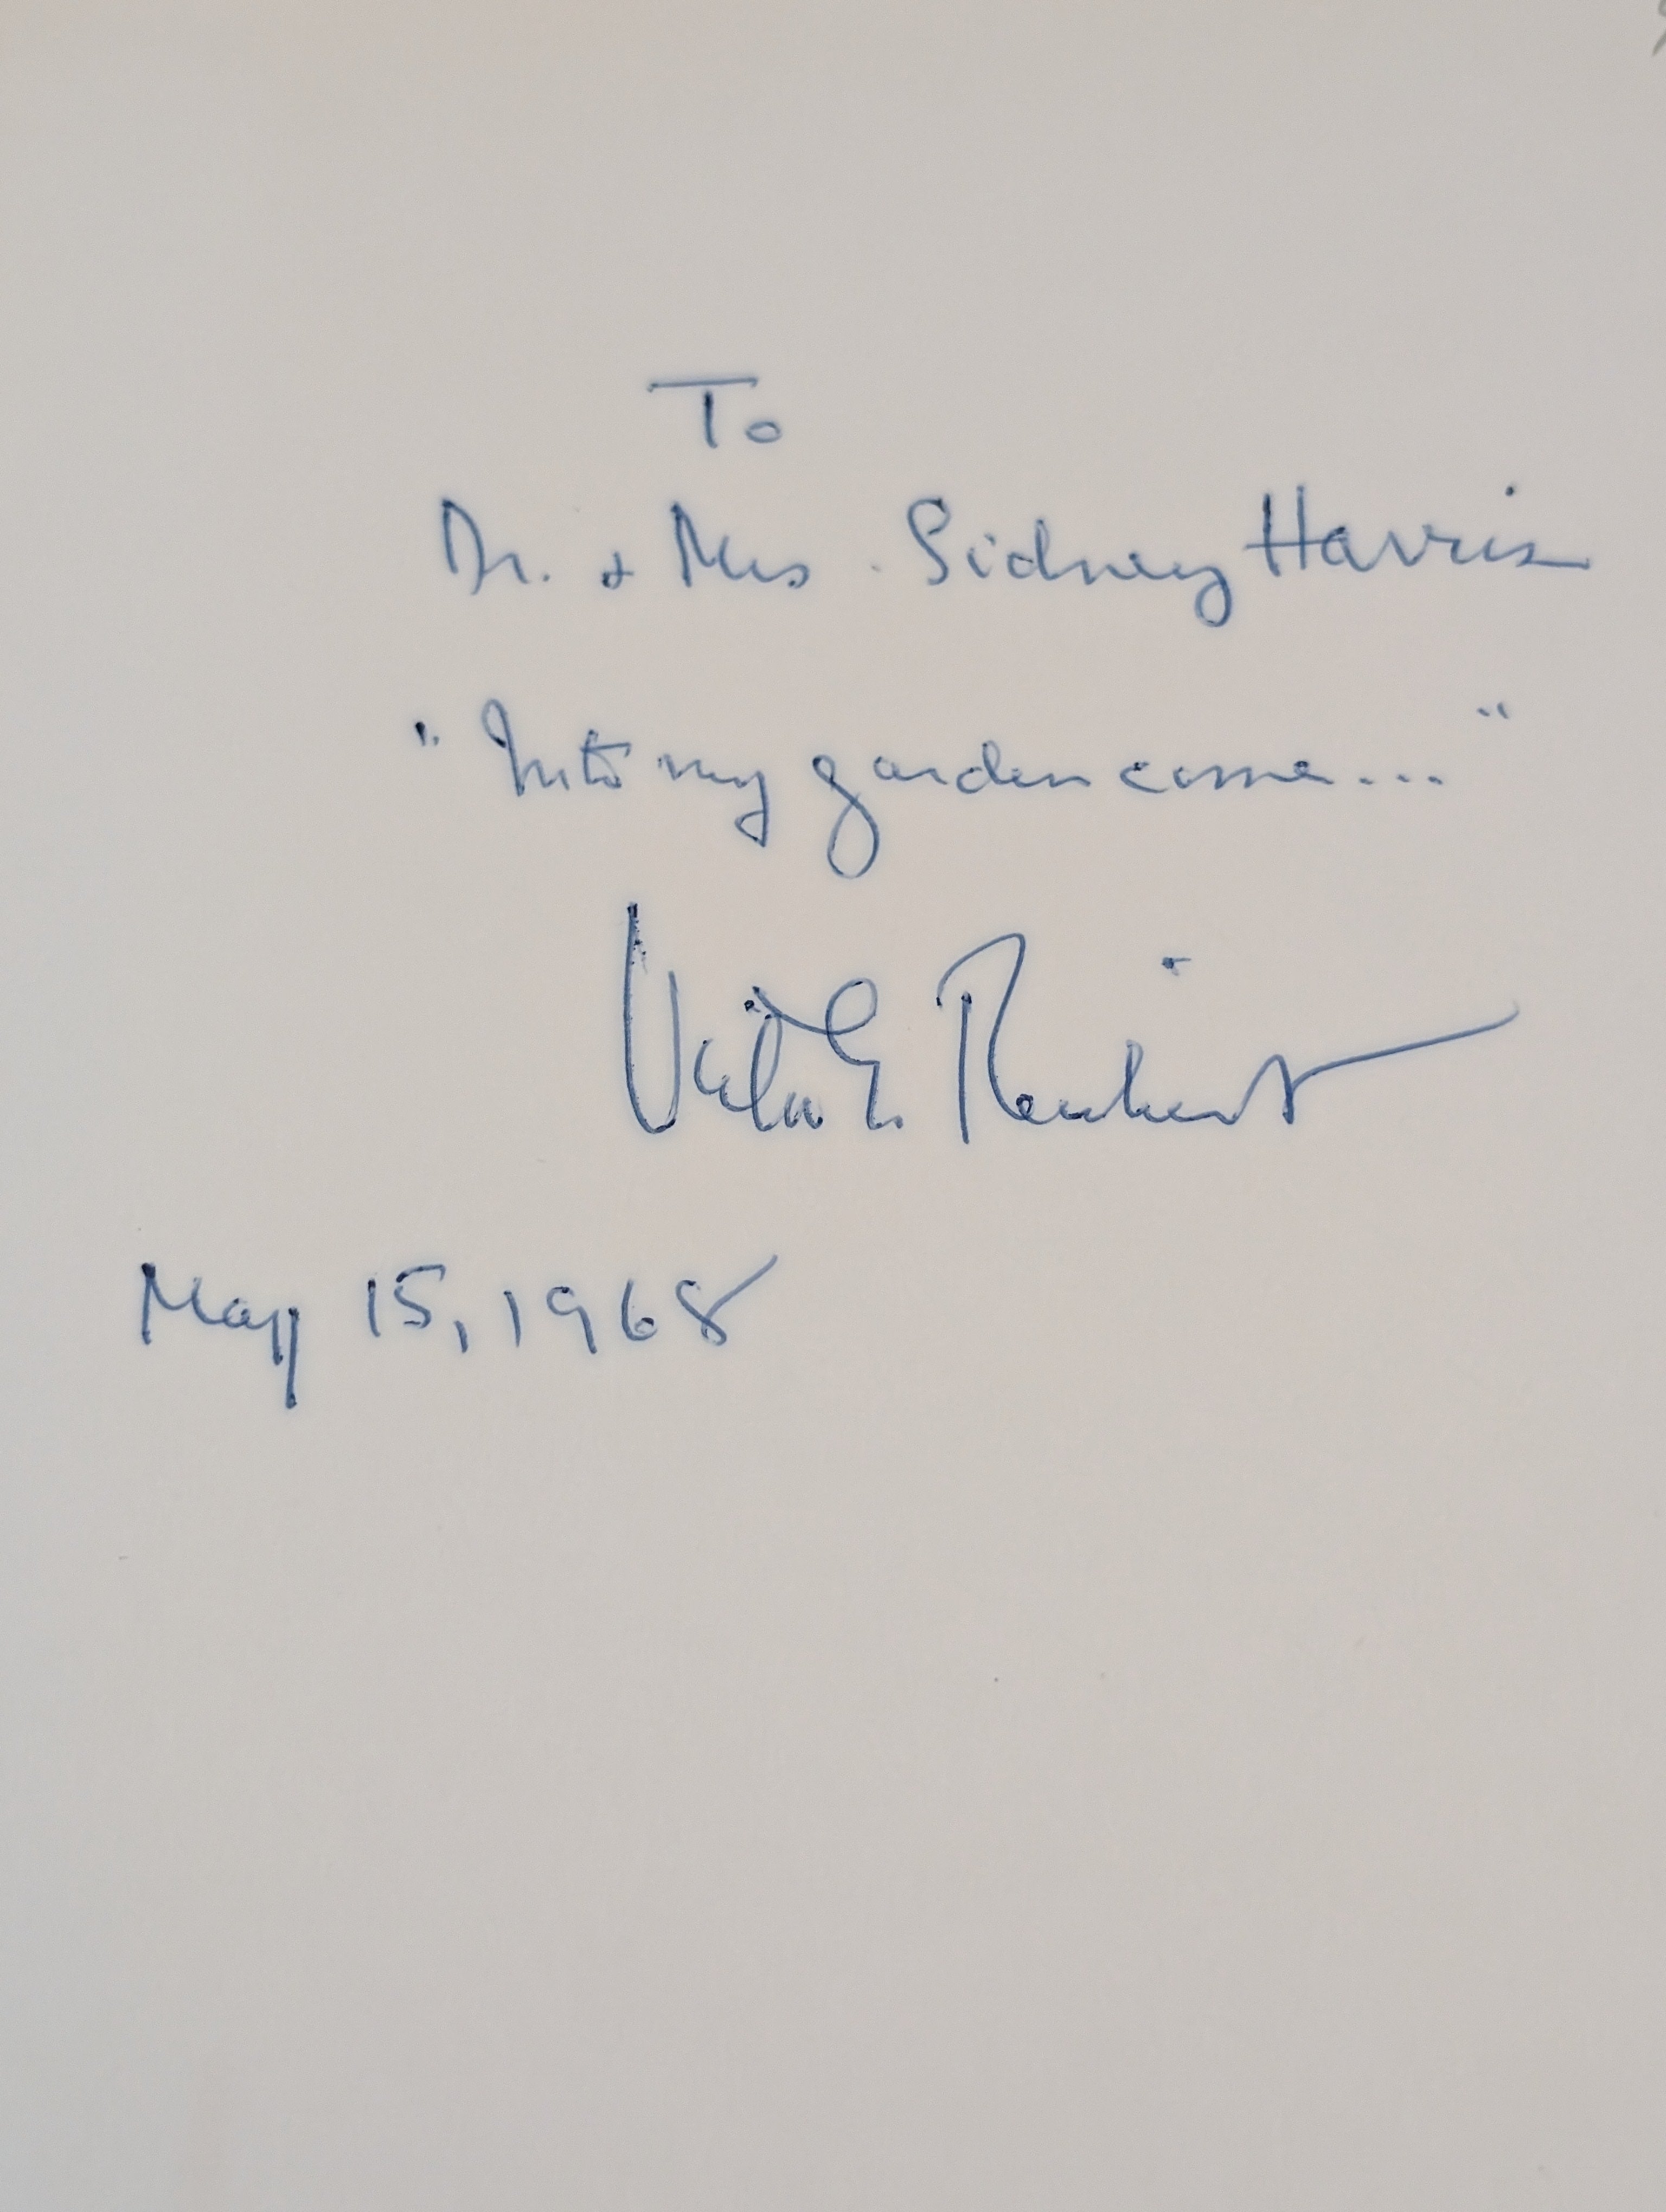 To
Dr. & Mrs. Sidney Harris
"Into my garden come..."
Victor E. Reichert
May 15, 1968